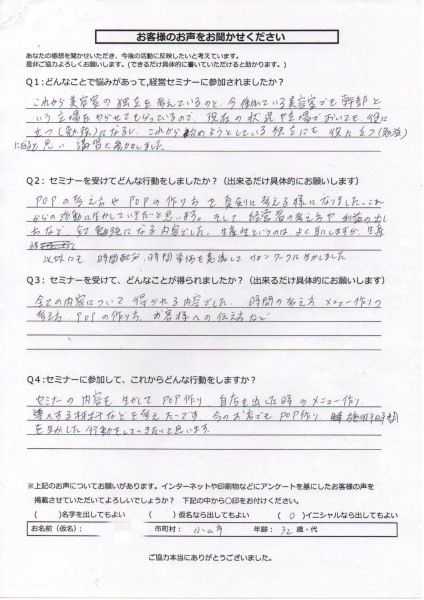 お客様のお声をお聞かせください
あなたの感想を聞かせいただき、今後の活動に反映したいと考えています。
是非ご協力よろしくお願いします。(できるだけ具体的に書いていただけると助かります。)
Q1:どんなことで悩みがあって,経営セミナーに参加されましたか?
これから美容室の独立を考えているのと、今働いている美容室でも幹部と
いう立場をやらせてもらっているので、現在の状況や立場においても、役に
立つ(勉強)になるし、これから始めようとしている独立にも役に立つ(勉強)
になると思い 講習に参加しました。
Q2:セミナーを受けてどんな行動をしましたか?(出来るだけ具体的にお願いします)
POPの考え方や POPの作り方を真剣に考える様になりました。これ
からの活動に生かしていきたいと思います。そして 経営者の考え方や 利益の出し
方など 全て勉強になる内容でした。生産性というのは よく耳にしますが、生産
以外にも 時間配分、時間単価を意識して サロンワークに生かしました
Q3:セミナーを受けて、どんなことが得られましたか?(出来るだけ具体的にお願いします)
全ての内容について 得られる内容でした。 時間の考え方 メニュー作りの
考え方 POPの作り方、お客様への伝え方など
Q4:セミナーに参加して、これからどんな行動をしますか?
セミナーの内容を生かして POP作り 自店を出した時のメニュー作り、
導入する材料などを考え 今のお店でも POP作り 施術時間
を生かした 行動をしていきたいと思います。
※上記のお声についてお願いがあります。インターネットや印刷物などにアンケートを基にしたお客様の声を
掲載させていただいてよろしいでしょうか? 下記の中から〇印をお付けください。
( )名字を出してもよい ( )仮名なら出してもよい ( O )イニシャルなら出してもよい
お名前(仮名): 市町村: 小山市 年齢: 32 歳・代
ご協力本当にありがとうございました。